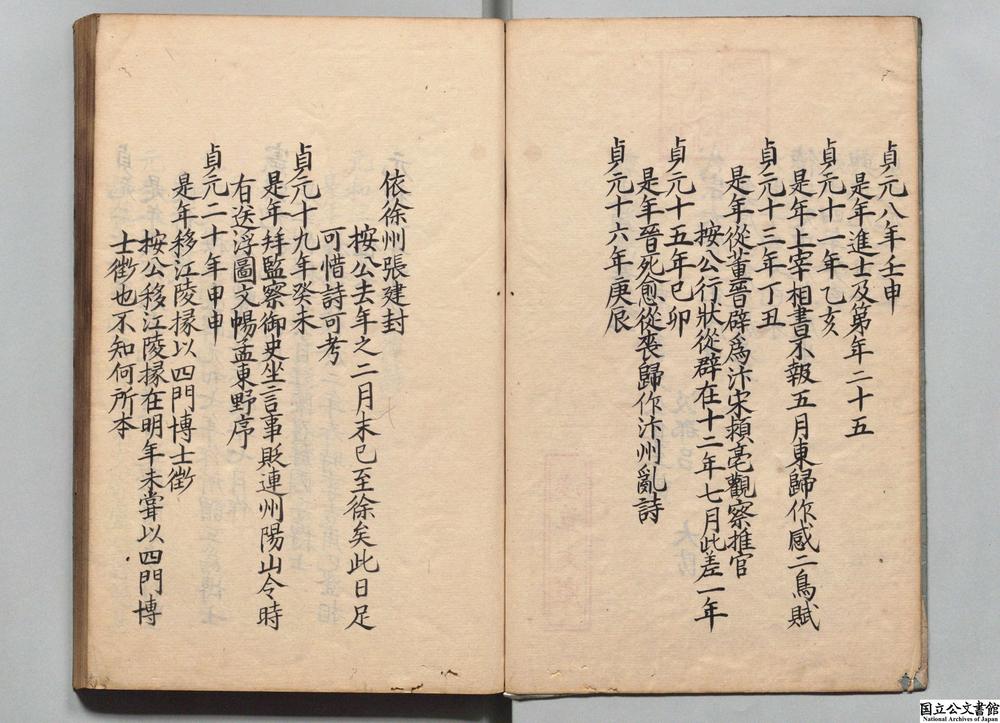 貞元八年壬申
是年進士及第年二十五
貞元十一年乙亥
是年上宰相書不報五月東歸作感二鳥賦
貞元十三年丁丑
是年從董晉辟爲汴宋潁亳觀察推官
按公行狀從辟在十二年七月此差一年
貞元十五年己卯
是年晉死愈從喪歸作汴州亂詩
貞元十六年庚辰
依徐州張建封
按公去年之二月末已至徐矣此日足
可惜詩可考
貞元十九年癸未
是年拜監察御史坐言事貶連州陽山令時
有送浮圖文暢孟東野序
貞元二十年甲申
是年移江陵掾以四門博士徵
按公移江陵掾在明年未甞以四門博
士徵也不知何所本
国立公文書館
National Archives of Japan